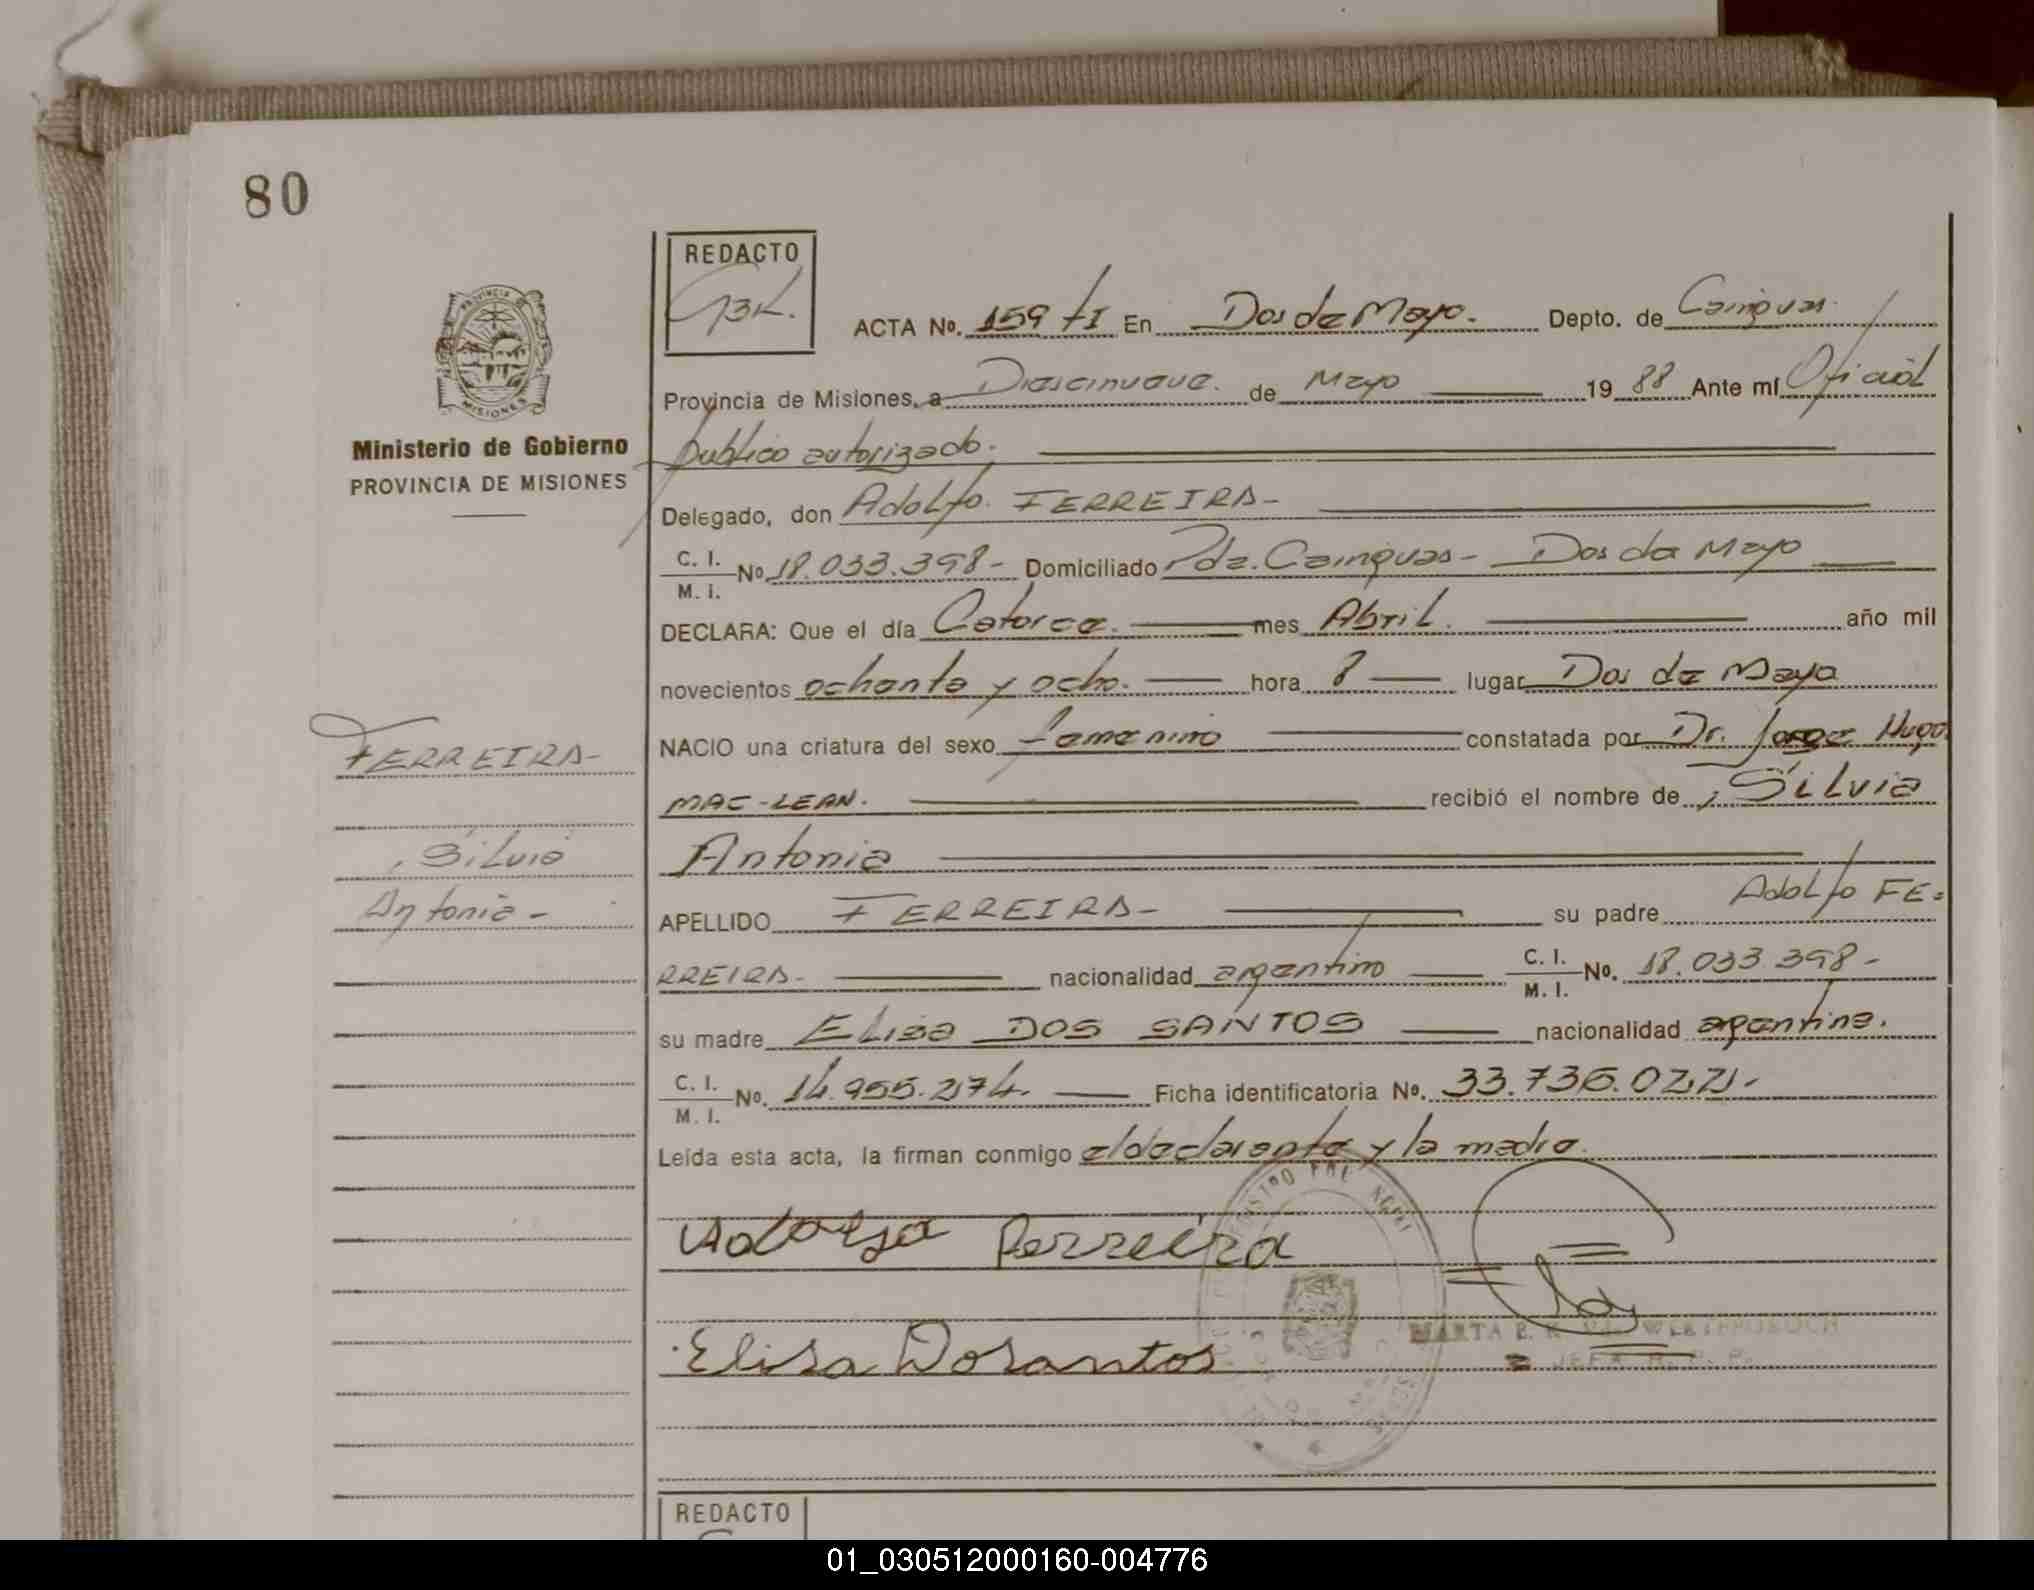 80
REDACTO
ACTA No. 159 tI En Dos de Mayo. Depto. de Cainguas.
Provincia de Misiones, a Diescinueve. de Mayo 1988 Ante mí Oficial
publico autorizado.
Ministerio de Gobierno
PROVINCIA DE MISIONES
Delegado, don Adolfo. FERREIRA-
C. I.
M. I. No 18.033.398- Domiciliado Pda. Cainguas - Dos de Mayo
DECLARA: Que el día Catorce. mes Abril. año mil
novecientos ochenta y ocho. hora 8 lugar Dos de Mayo
NACIO una criatura del sexo femenino constatada por Dr. Jorge Hugo
MAC-LEAN. recibió el nombre de Silvia
Antonia
APELLIDO FERREIRA- su padre Adolfo FE=
RREIRA- nacionalidad argentino C. I.
M. I. No. 18.033.398-
su madre Elisa DOS SANTOS nacionalidad argentina.
C. I.
M. I. No. 14.955.274. Ficha identificatoria No. 33.736.022-
Leída esta acta, la firman conmigo el declarante y la madre.
FERREIRA-
Silvia
Antonia-
Adolfo Ferreira
Elisa Dosantos
MARTA
JEFA R. P. P.
REDACTO
01_030512000160-004776